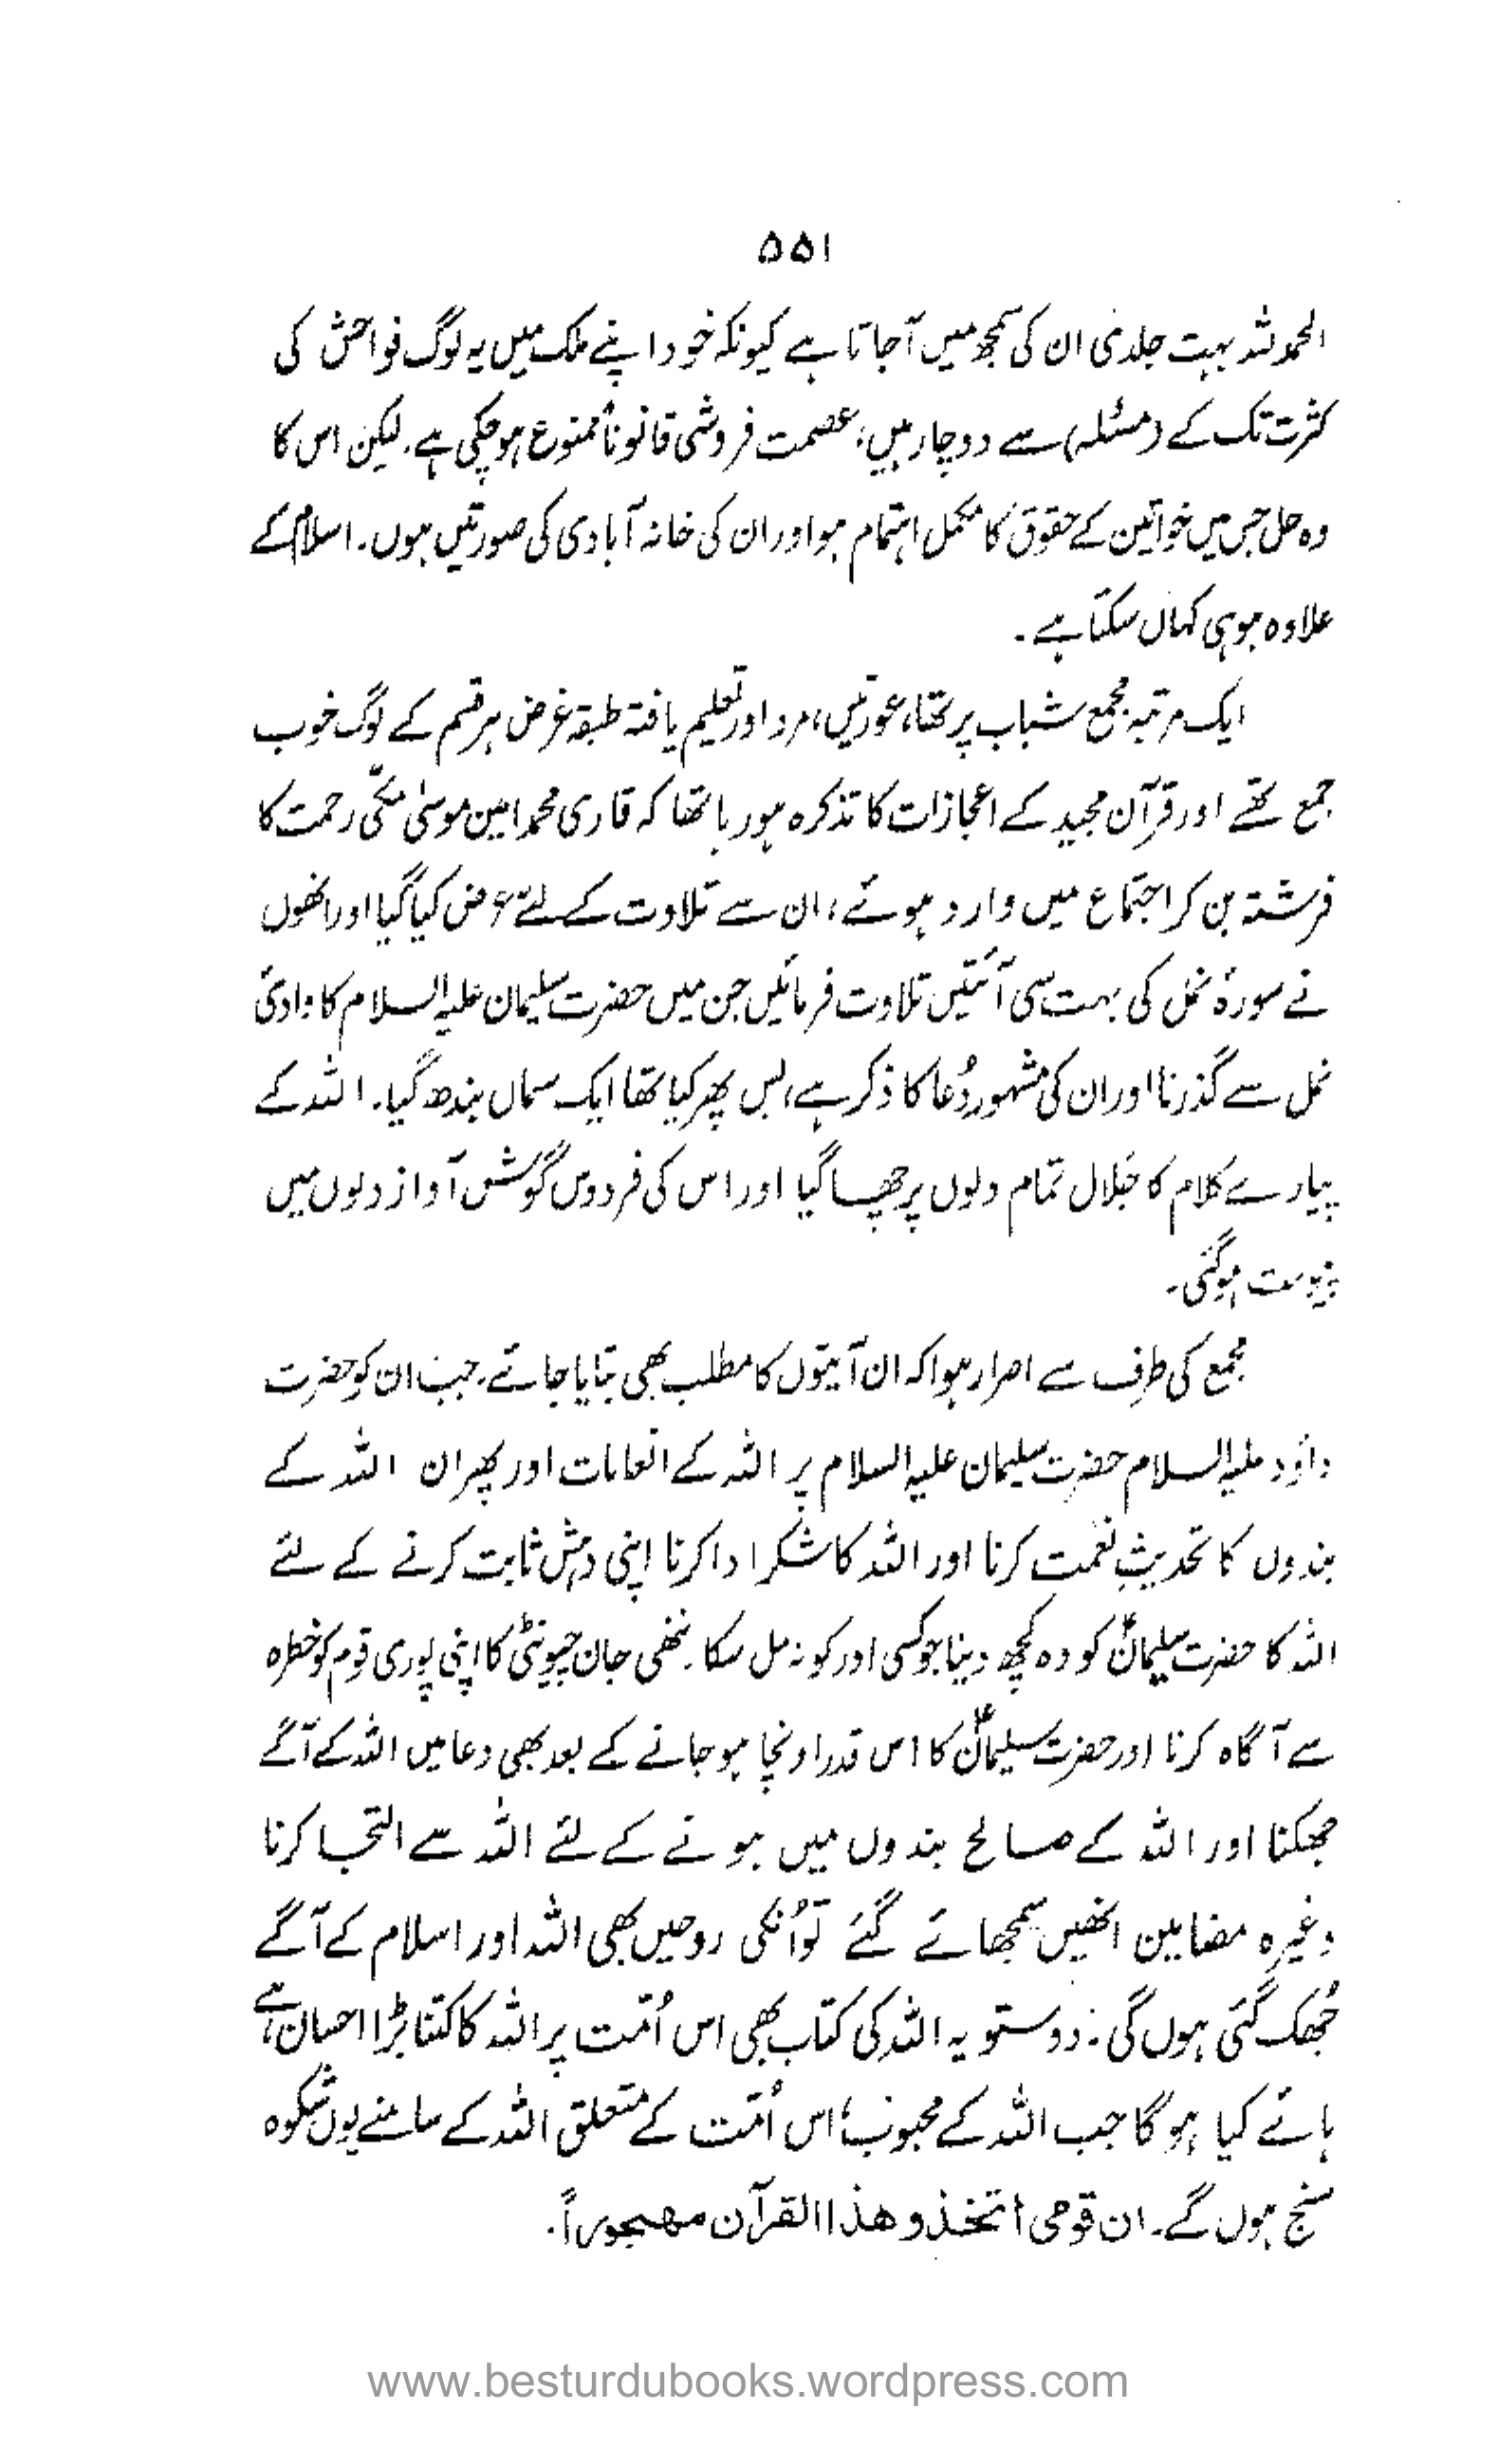 ۵۵۱
الحمدللہ بہت جلدی ان کی سمجھ میں آجاتا ہے کیونکہ خود اپنے ملک میں یہ لوگ فواحش کی
کثرت تک کے (مسئلہ) سے دوچار ہیں، عصمت فروشی قانوناً ممنوع ہو چکی ہے۔ لیکن اس کا
وہ حل جس میں خواتین کے حقوق کا مکمل اہتمام ہو اور ان کی خانہ آبادی کی صورتیں ہوں۔ اسلام کے
علاوہ ہو ہی کہاں سکتا ہے۔
ایک مرتبہ مجمع شباب پر تھا، عورتیں، مرد اور تعلیم یافتہ طبقہ غرض ہر قسم کے لوگ خوب
جمع تھے اور قرآن مجید کے اعجازات کا تذکرہ ہو رہا تھا کہ قاری محمد امین موسیٰ مکّی رحمت کا
فرشتہ بن کر اجتماع میں وارد ہوئے، ان سے تلاوت کے لئے عرض کیا گیا اور انھوں
نے سورۂ نمل کی بہت سی آئتیں تلاوت فرمائیں جن میں حضرت سلیمان علیہ السلام کا وادیٔ
نمل سے گذرنا اور ان کی مشہور دُعا کا ذکر ہے، بس پھر کیا تھا ایک سماں بندھ گیا۔ اللہ کے
پیارے کلام کا جَلال تمام دلوں پر چھا گیا اور اس کی فردوس گوش آواز دلوں میں
پیوست ہو گئی۔
مجمع کی طرف سے اصرار ہوا کہ ان آیتوں کا مطلب بھی بتایا جائے۔ جب ان کو حضرت
داؤد علیہ السلام حضرت سلیمان علیہ السلام پر اللہ کے انعامات اور پھر ان اللہ کے
بندوں کا تحدیثِ نعمت کرنا اور اللہ کا شکر ادا کرنا اپنی دہش ثابت کرنے کے لئے
اللہ کا حضرت سلیمانؑ کو وہ کچھ دینا جو کسی اور کو نہ مل سکا۔ ننھی جان چیونٹی کا اپنی پوری قوم کو خطرہ
سے آگاہ کرنا اور حضرت سلیمانؑ کا اس قدر اونچا ہو جانے کے بعد بھی دعا میں اللہ کے آگے
جھکنا اور اللہ کے صالح بندوں میں ہونے کے لئے اللہ سے التجا کرنا
وغیرہ مضامین انھیں سمجھائے گئے تو اُنکی روحیں بھی اللہ اور اسلام کے آگے
جُھک گئی ہوں گی۔ دوستو یہ اللہ کی کتاب بھی اس اُمّت پر اللہ کا کتنا بڑا احسان ہے،
ہائے کیا ہوگا جب اللہ کے محبوبؐ اس اُمّت کے متعلق اللہ کے سامنے یوں شکوہ
سنج ہوں گے۔ ان قومی اتخذو ھذا القرآن مھجوراً۔
www.besturdubooks.wordpress.com